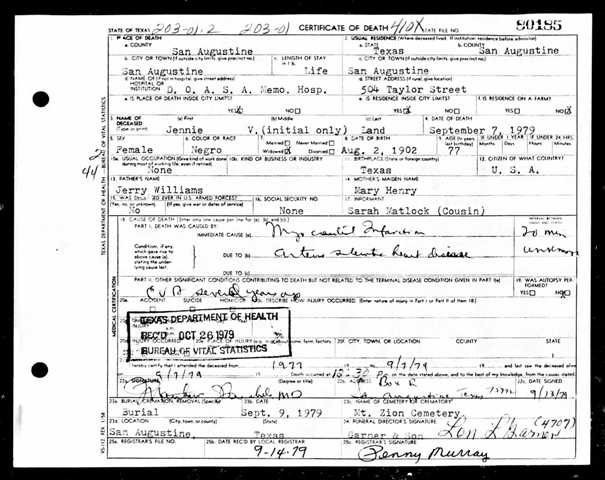 STATE OF TEXAS 203-01.2 203-01 CERTIFICATE OF DEATH 410X STATE FILE NO. 90185
1. PLACE OF DEATH 2. USUAL RESIDENCE (Where deceased lived. If institution: residence before admission)
a. COUNTY a. STATE b. COUNTY
San Augustine Texas San Augustine
b. CITY OR TOWN (If outside city limits, give precinct no.) c. LENGTH OF STAY c. CITY OR TOWN (If outside city limits, give precinct no.)
San Augustine Life San Augustine
d. NAME OF (If not in hospital, give street address) d. STREET ADDRESS (If rural, give location)
HOSPITAL OR INSTITUTION D. O. A. S. A. Memo. Hosp. 504 Taylor Street
e. IS PLACE OF DEATH INSIDE CITY LIMITS? e. IS RESIDENCE INSIDE CITY LIMITS? f. IS RESIDENCE ON A FARM?
YES NO YES NO YES NO
3. NAME OF DECEASED (a) First (b) Middle (c) Last 4. DATE OF DEATH
(Type or print) Jennie V.(initial only) Land September 7, 1979
5. SEX 6. COLOR OR RACE 7. Married Never Married 8. DATE OF BIRTH 9. AGE (In years IF UNDER 1 YEAR IF UNDER 24 HRS.
Female Negro Widowed Divorced Aug. 2, 1902 77 Months Days Hours Min.
10a. USUAL OCCUPATION (Give kind of work done during most of working life, even if retired) 10b. KIND OF BUSINESS OR INDUSTRY 11. BIRTHPLACE (State or foreign country) 12. CITIZEN OF WHAT COUNTRY?
None Texas U. S. A.
13. FATHER'S NAME 14. MOTHER'S MAIDEN NAME
Jerry Williams Mary Henry
15. WAS DECEASED EVER IN U.S. ARMED FORCES? 16. SOCIAL SECURITY NO. 17. INFORMANT
(Yes, no, or unknown) (If yes, give war or dates of service)
No None Sarah Matlock (Cousin)
18. CAUSE OF DEATH (Enter only one cause per line for (a), (b), and (c).)
PART I. DEATH WAS CAUSED BY:
IMMEDIATE CAUSE (a) Myocardial Infarction 20 min
Conditions, if any which gave rise to above cause (a) stating the underlying cause last. DUE TO (b) heart disease unknown
DUE TO (c)
PART II. OTHER SIGNIFICANT CONDITIONS CONTRIBUTING TO DEATH BUT NOT RELATED TO THE TERMINAL DISEASE CONDITION GIVEN IN PART I(a) 19. WAS AUTOPSY PERFORMED?
CVA several years ago YES NO
20a. ACCIDENT SUICIDE HOMICIDE 20b. DESCRIBE HOW INJURY OCCURRED. (Enter nature of injury in Part I or Part II of item 18.)
TEXAS DEPARTMENT OF HEALTH
REC'D OCT 26 1979
BUREAU OF VITAL STATISTICS
20f. CITY, TOWN, OR LOCATION COUNTY STATE
I hereby certify that I attended the deceased from 1977 to 9/7/79 and last saw the deceased
Death occurred at on the date stated above, and to the best of my knowledge, from the causes stated.
22a. SIGNATURE (Degree or title) 22b. ADDRESS 22c. DATE SIGNED
MD Box R San Augustine Texas 9/13/79
23a. BURIAL, CREMATION, REMOVAL (Specify) 23b. DATE 23c. NAME OF CEMETERY OR CREMATORY
Burial Sept. 9, 1979 Mt. Zion Cemetery
23d. LOCATION (City, town, or county) (State) 24. FUNERAL DIRECTOR'S SIGNATURE (4707)
San Augustine, Texas Garner & Son Lon L Garner
25a. REGISTRAR'S FILE NO. 25b. DATE REC'D BY LOCAL REGISTRAR 25c. REGISTRAR'S SIGNATURE
9-14-79 Penny Murray
TEXAS DEPARTMENT OF HEALTH BUREAU OF VITAL STATISTICS
MEDICAL CERTIFICATION